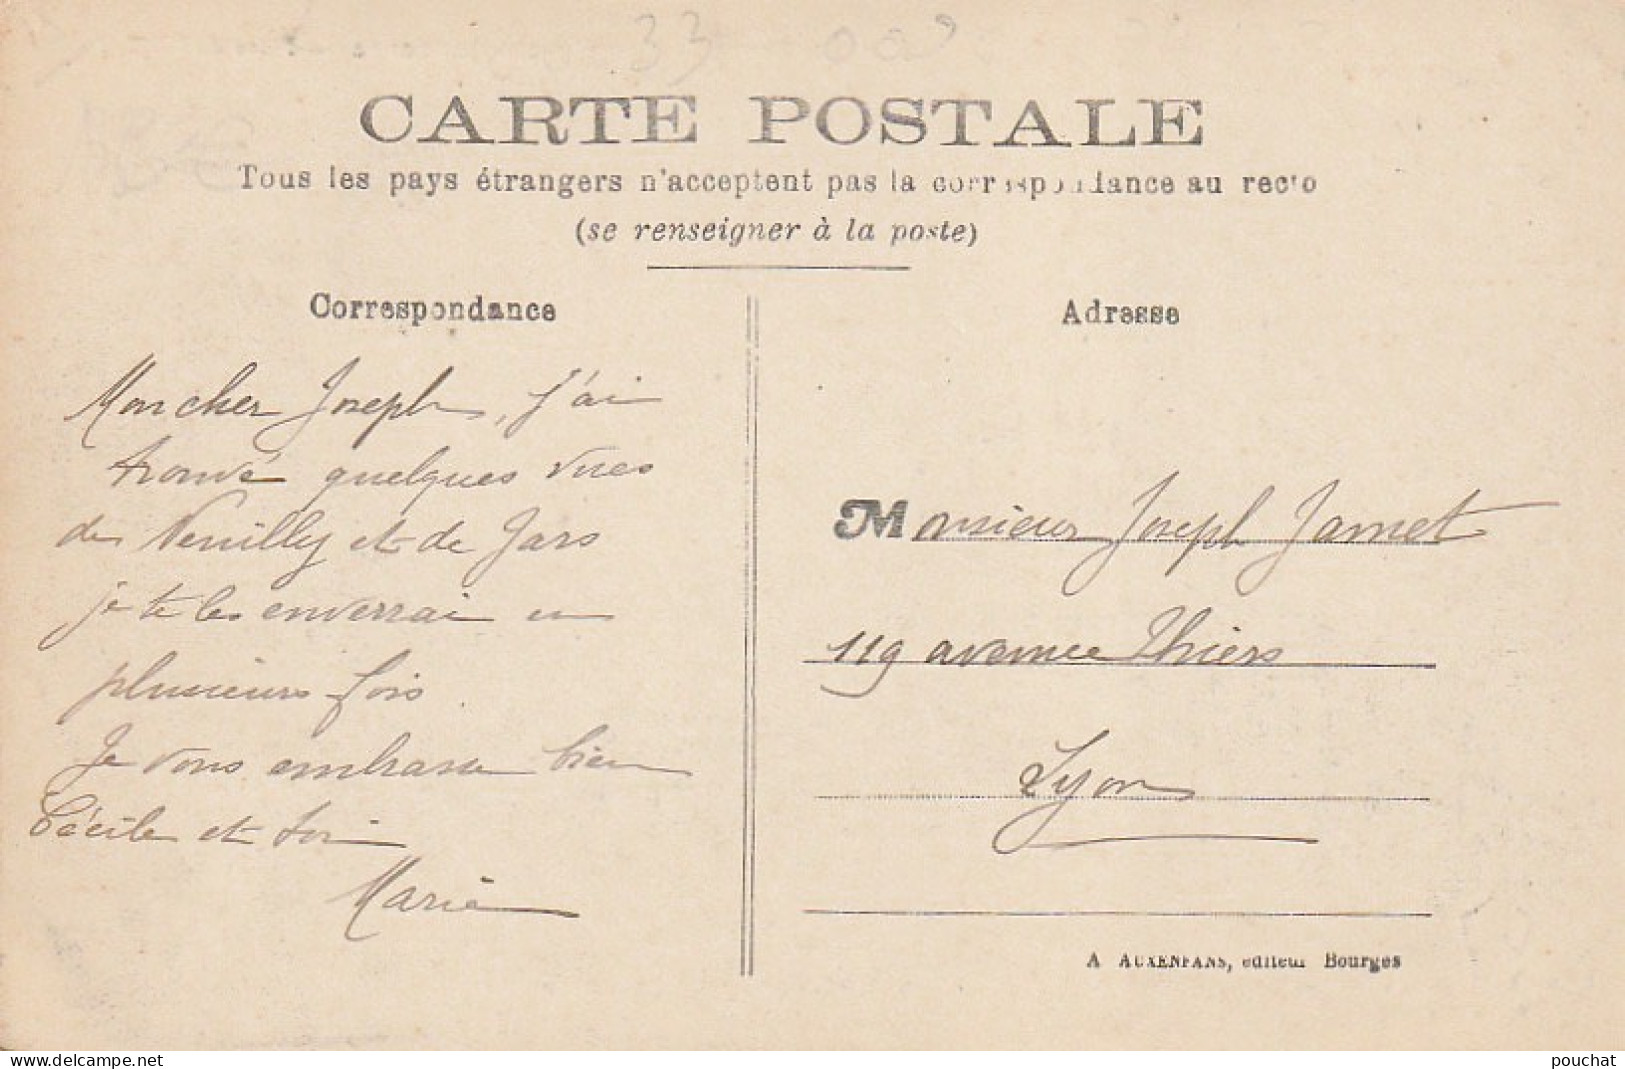 33
CARTE POSTALE
Tous les pays étrangers n'acceptent pas la correspondance au recto
(se renseigner à la poste)
Correspondance
Mon cher Joseph, j'ai
trouvé quelques vues
de Neuilly et de Jars
je te les enverrai en
plusieurs fois
Je vous embrasse bien
Cécile et toi
Marie
Adresse
Monsieur Joseph Jamet
119 avenue Thiers
Lyon
A AUXENFANS, editeur Bourges
www.delcampe.net
pouchat